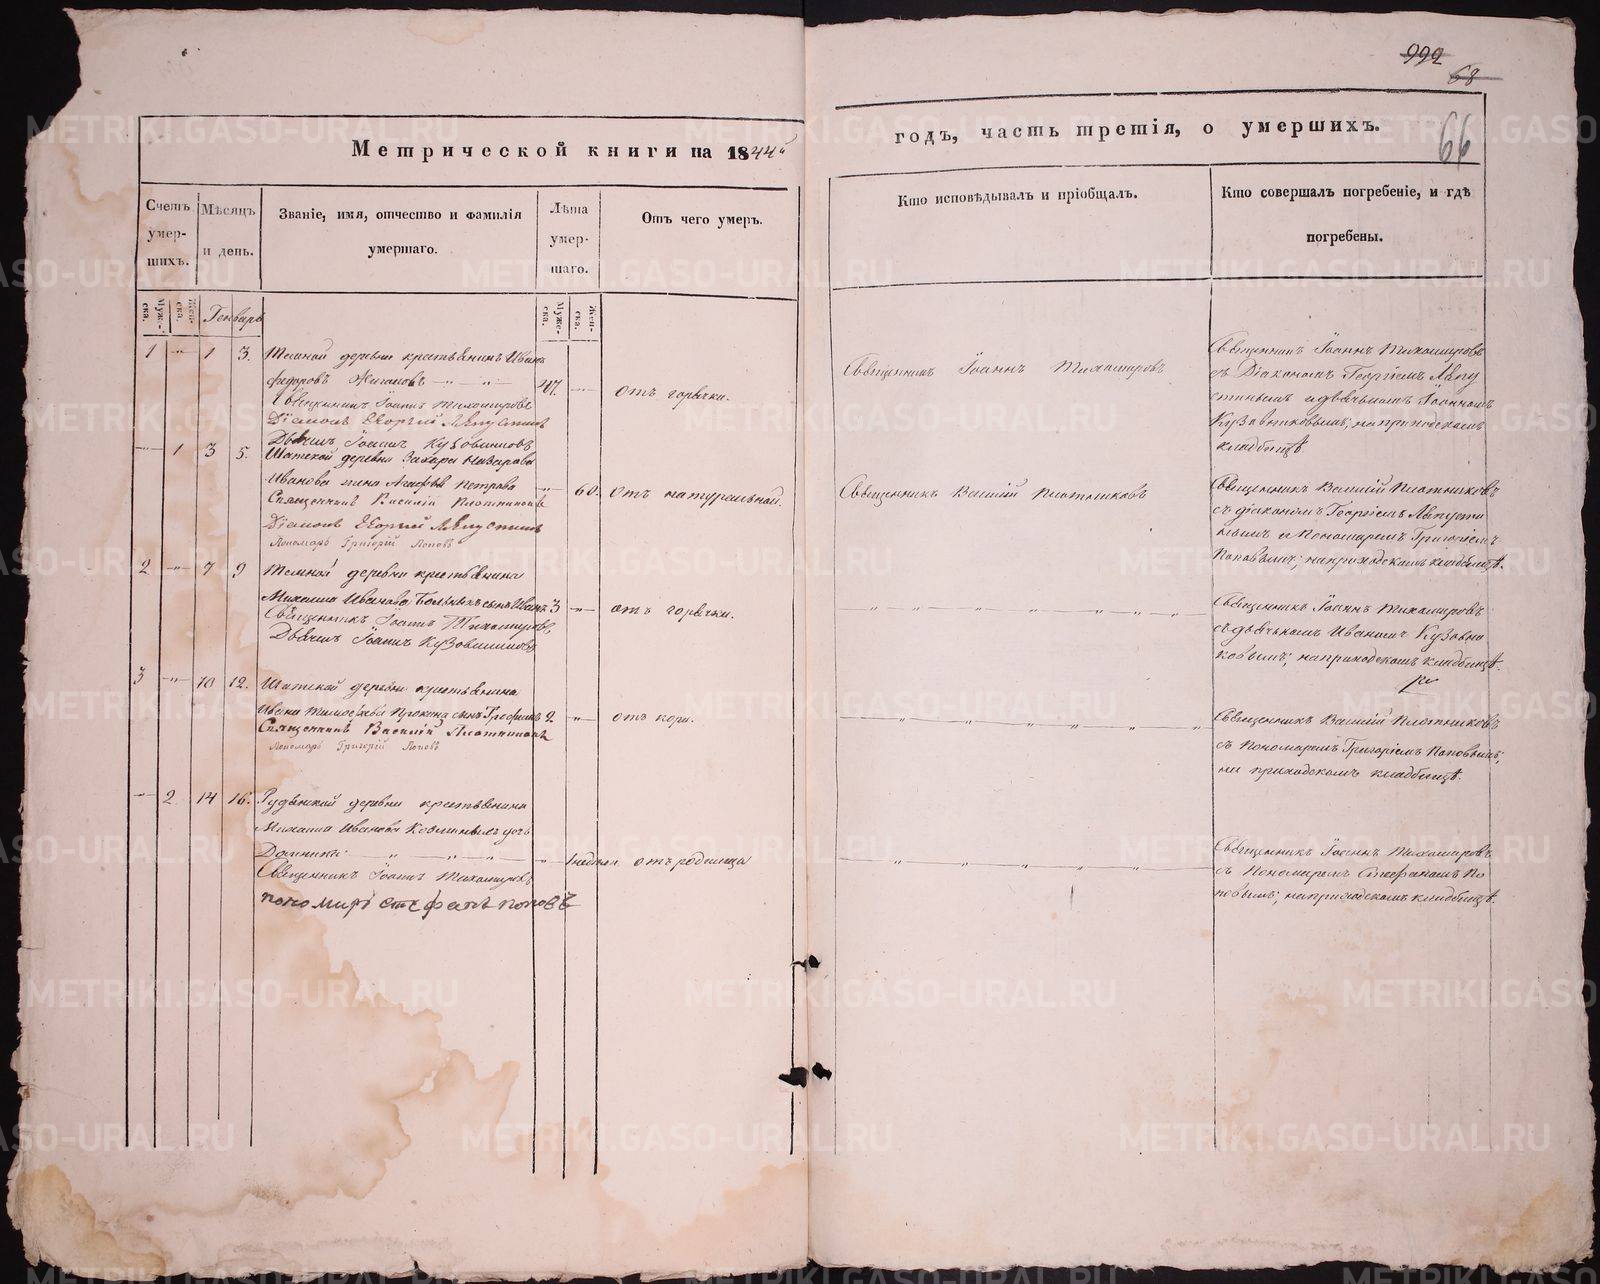 999
68
66
Метрической книги на 1844й
годъ, часть третія, о умершихъ.
Счетъ умер-шихъ.
Мѣсяцъ и день.
Званіе, имя, отчество и фамилія умершаго.
Лѣта умер-шаго.
Отъ чего умеръ.
Кто исповѣдывалъ и пріобщалъ.
Кто совершалъ погребеніе, и гдѣ погребены.
Муже-ска.
Жен-ска.
Генварь
Муже-ска.
Жен-ска.
1 " 1 3. деревни крестьянинъ Иванъ
Федоровъ Жигаловъ 47. отъ горячки.
Священникъ Іоаннъ Тихомировъ
Діаконъ Георгий Ляпустинъ
Дьячекъ Іоаннъ Кузовниковъ
Священникъ Іоаннъ Тихомировъ
Священникъ Іоаннъ Тихомировъ
съ Діакономъ Георгіемъ Ляпу
стинымъ и дьячькомъ Іоанномъ
Кузовниковымъ; на приходскомъ
кладбищѣ.
1 3 5. Шатской деревни Захара Назарова
Иванова жена Петрова 60. отъ натуральной.
Священникъ Василій Плотниковъ
Діаконъ Георгий Ляпустинъ
Пономарь Григорій Поповъ
Священникъ Василій Плотниковъ
Священникъ Василій Плотниковъ
съ діакономъ Георгіемъ Ляпусти
нымъ и Пономаремъ Григоріемъ
Поповымъ; на приходскомъ кладбищѣ.
2 " 7 9 деревни крестьянина
Михаила Иванова сынъ Иванъ 3 " отъ горячки.
Священникъ Іоаннъ Тихомировъ,
Дьячекъ Іоаннъ Кузовниковъ
Священникъ Іоаннъ Тихомировъ
съ дьячькомъ Иваномъ Кузовни
ковымъ; на приходскомъ кладбищѣ.
3 " 10 12. Шатской деревни крестьянина
Ивана сынъ Трофимъ 2 " отъ кори.
Священникъ Василій Плотниковъ
Пономарь Григорій Поповъ
Священникъ Василій Плотниковъ
съ Пономаремъ Григоріемъ Поповымъ;
на приходскомъ кладбищѣ.
2 14 16. деревни крестьянина
Михаила Иванова дочь
Домника " недели отъ родимца
Священникъ Іоаннъ Тихомировъ
пономарь стефанъ поповъ
Священникъ Іоаннъ Тихомировъ
съ Пономаремъ Стефаномъ По
повымъ; на приходскомъ кладбищѣ.
METRIKI.GASO-URAL.RU